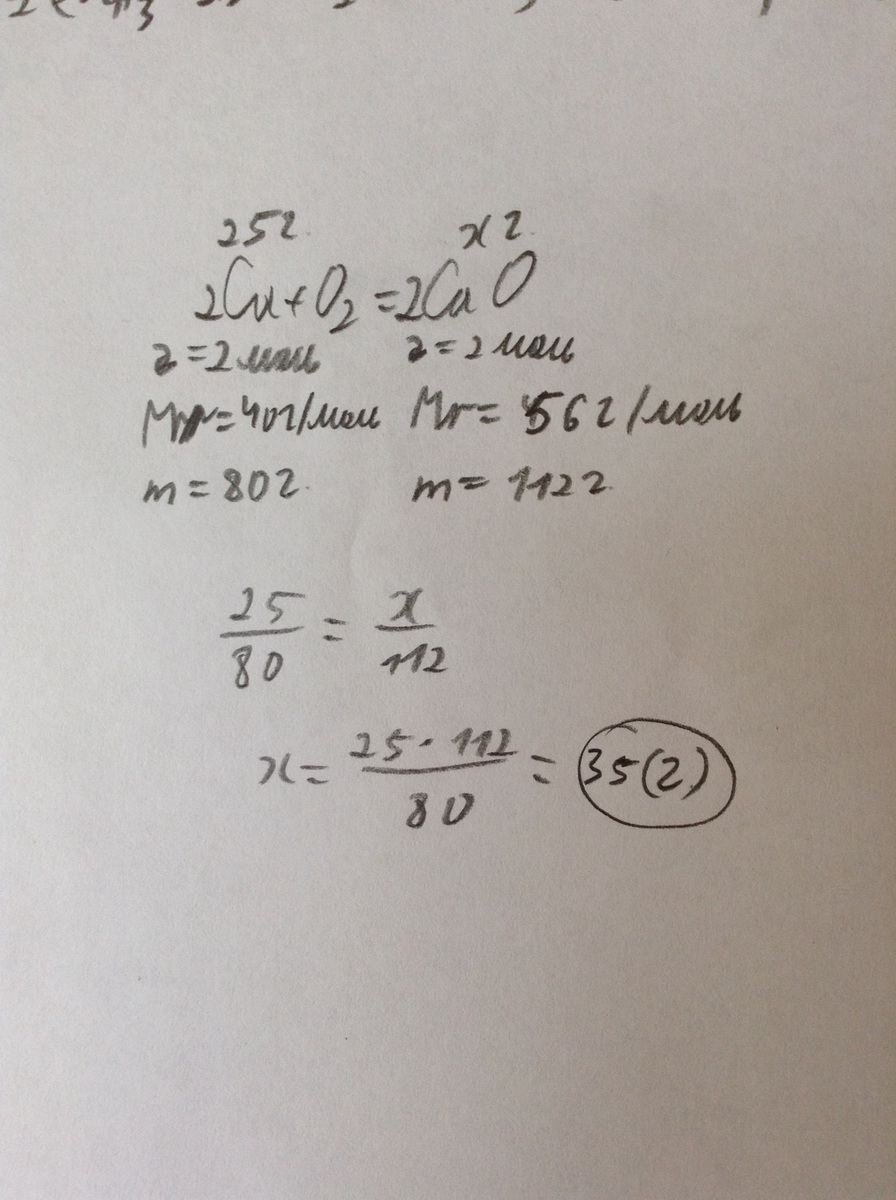 25г. xг.
2Ca+O₂=2CaO
ν=2моль ν=2моль
Mr=40г/моль Mr=56г/моль
m=80г. m=112г
25/80 = x/112
x= 25·112/80 = 35(г)